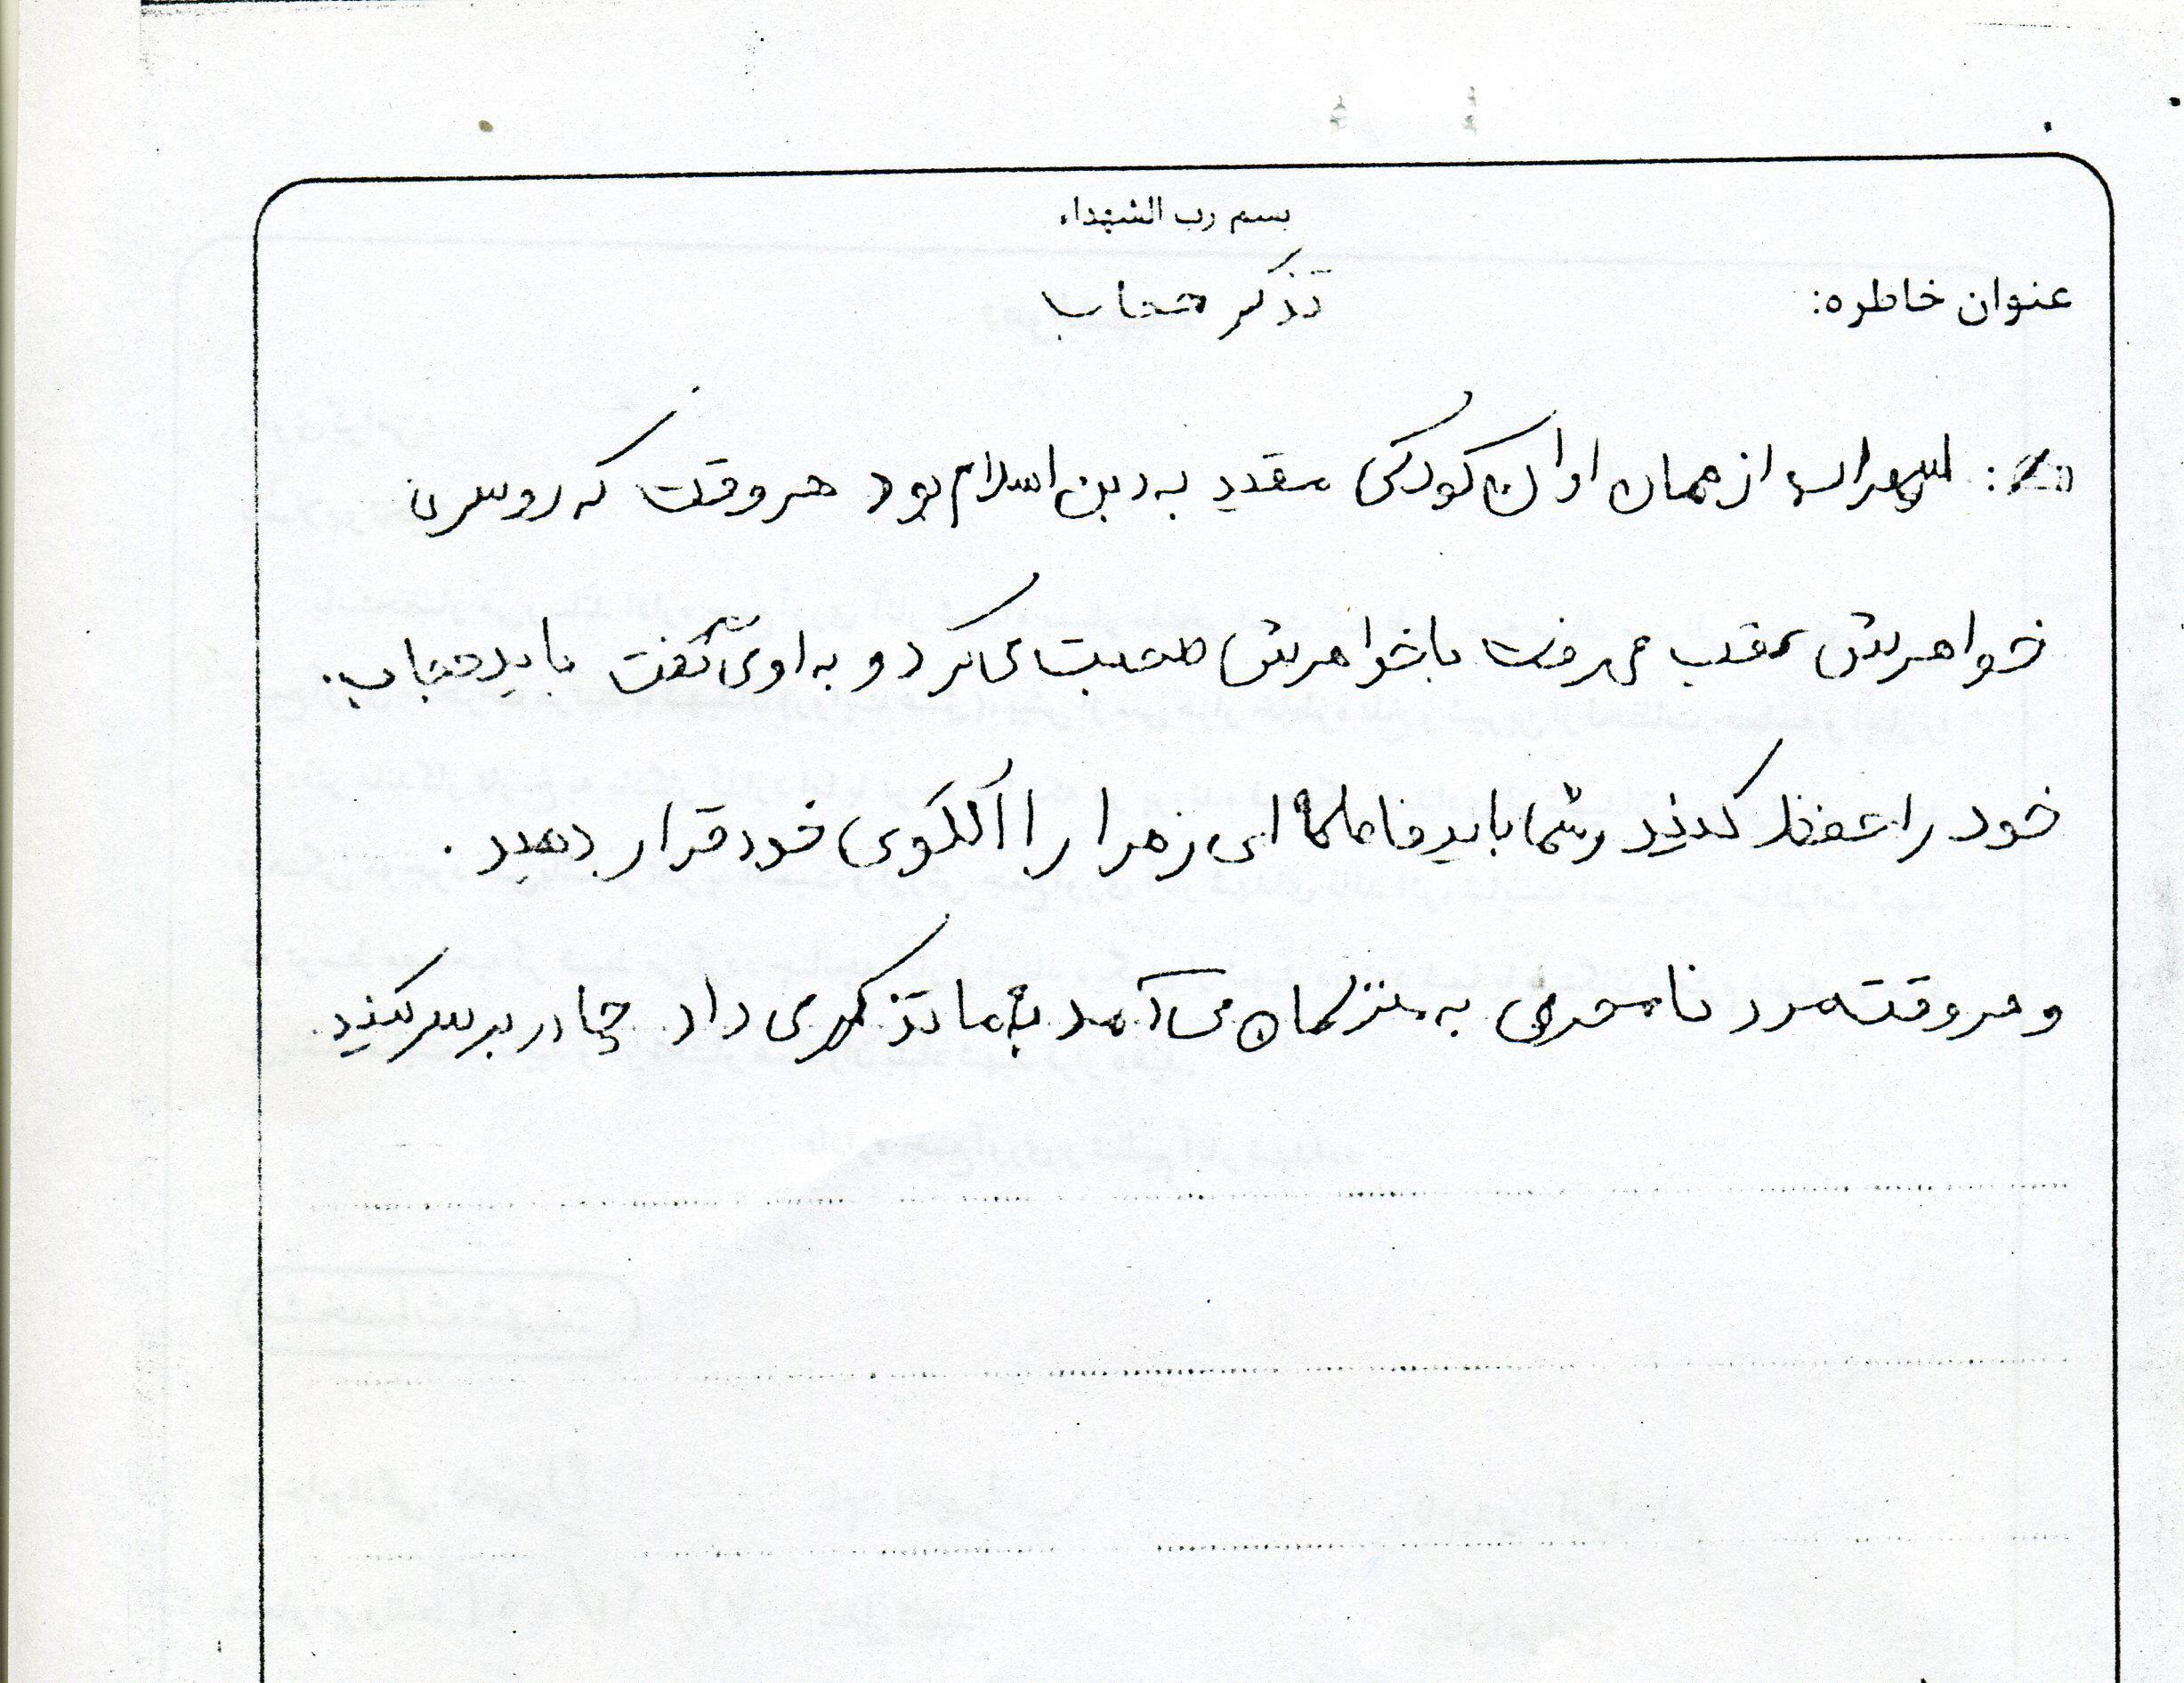 بسم رب الشهداء
عنوان خاطره: تذکر حجاب
سهراب از همان اوان کودکی مقید به دین اسلام بود هر وقت که روسری
خواهرش عقب می رفت با خواهرش صحبت می کرد و به او می گفت باید حجاب
خود را حفظ کنید و شما باید فاطمه ای زهرا را الگوی خود قرار دهید .
و هر وقت مرد نامحرمی به منزلمان می آمد به ما تذکر می داد چادر بر سر کنید